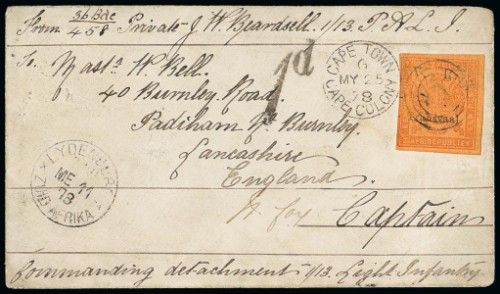 36 Bde
From 458 Private J. W. Beardsell. 1/13. P. A. L. I.
To Mast. W. Bell.
40 Burnley Road.
Padiham Nr. Burnley.
Lancashire
England.
for Captain
Commanding detachment 1/13. Light Infantry
1d
CAPE TOWN
6
MY 25
78
CAPE COLONY
LYDENBURG
ME 11
78
ZUID AFRIKA